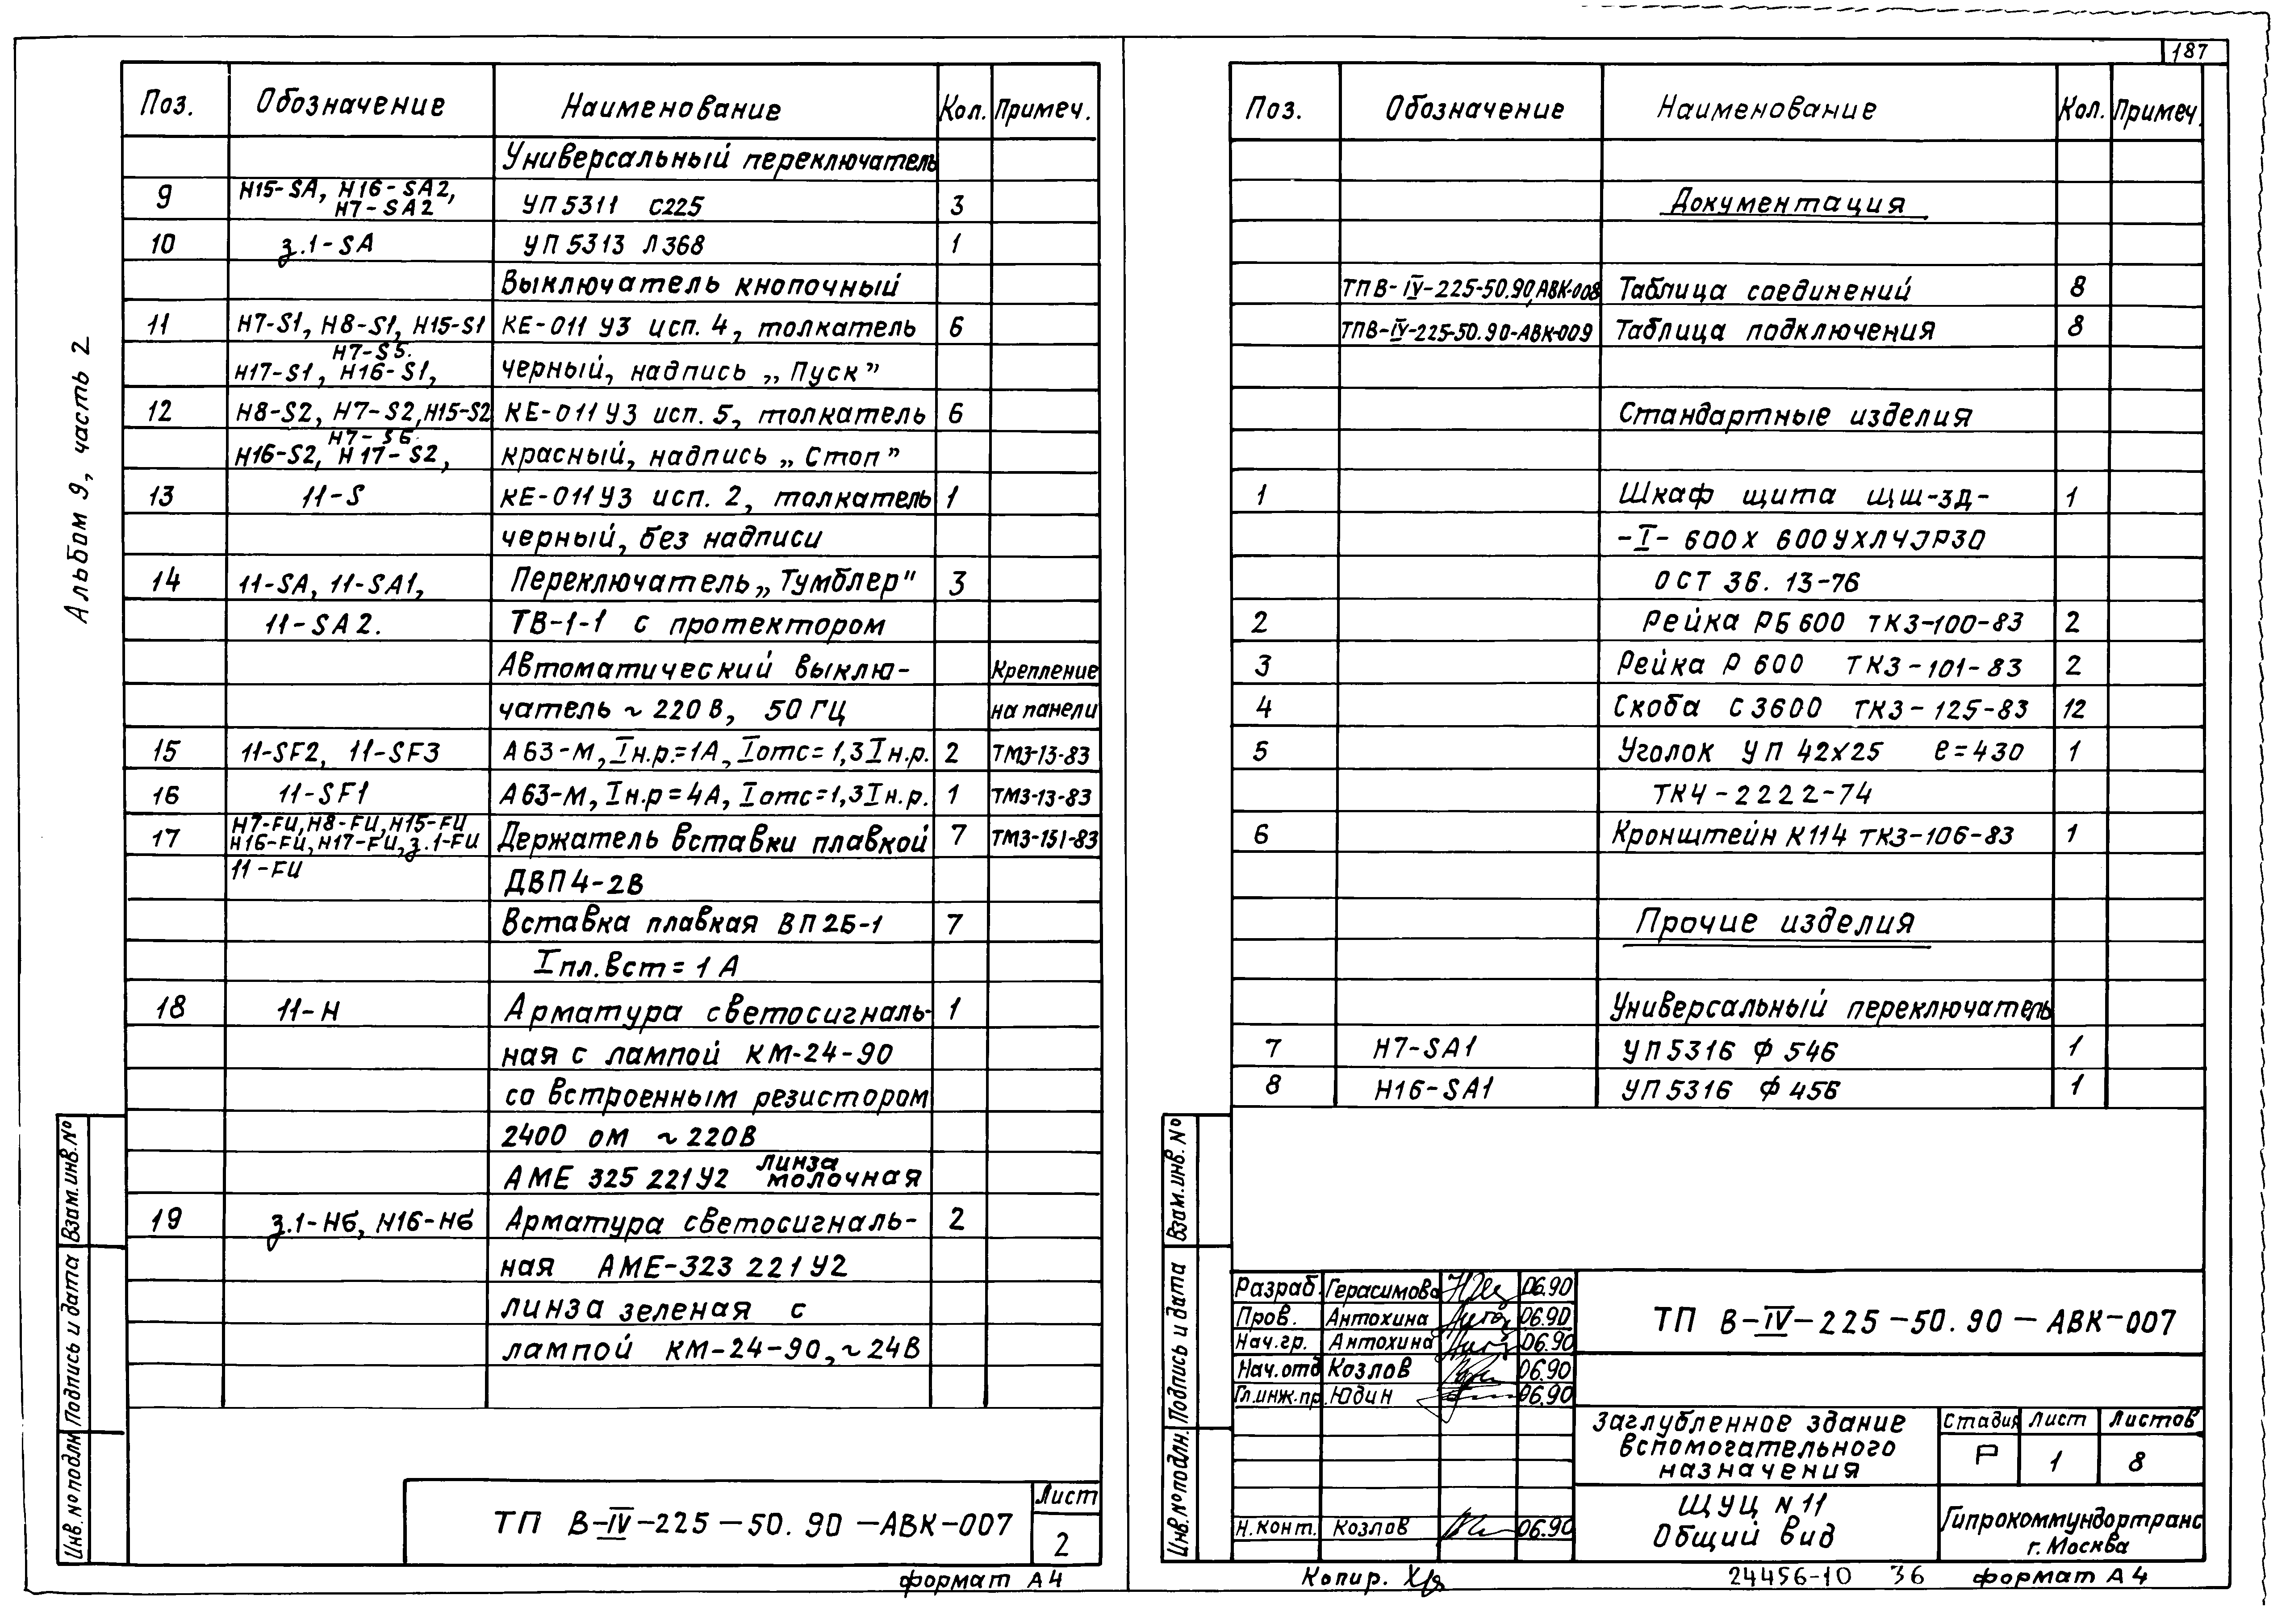 187
Альбом 9, часть 2
Поз. Обозначение Наименование Кол. Примеч.
Универсальный переключатель
9 Н15-SA, Н16-SA2, Н7-SA2 УП5311 С225 3
10 з.1-SA УП 5313 Л368 1
Выключатель кнопочный
11 Н7-S1, Н8-S1, Н15-S1 КЕ-011 У3 исп. 4, толкатель 6
Н7-S5.
Н17-S1, Н16-S1, черный, надпись „Пуск”
12 Н8-S2, Н7-S2, Н15-S2 КЕ-011 У3 исп. 5, толкатель 6
Н7-S6.
Н16-S2, Н17-S2, красный, надпись „Стоп”
13 11-S КЕ-011 У3 исп. 2, толкатель 1
черный, без надписи
14 11-SA, 11-SA1, Переключатель „Тумблер” 3
11-SA2. ТВ-1-1 с протектором
Автоматический выклю- Крепление
чатель ~ 220 В, 50 ГЦ на панели
15 11-SF2, 11-SF3 А63-М, Iн.р.=1А, Iотс=1,3Iн.р. 2 ТМ3-13-83
16 11-SF1 А63-М, Iн.р=4А, Iотс=1,3Iн.р. 1 ТМ3-13-83
Н7-FU, Н8-FU, Н15-FU
17 Н16-FU, Н17-FU, з.1-FU Держатель вставки плавкой 7 ТМ3-151-83
11-FU ДВП4-2В
Вставка плавкая ВП2Б-1 7
Iпл.вст = 1 А
18 11-Н Арматура светосигналь- 1
ная с лампой КМ-24-90
со встроенным резистором
2400 ом ~220В
АМЕ 325 221У2 линза молочная
19 з.1-Нб, Н16-Нб Арматура светосигналь- 2
ная АМЕ-323 221 У2
линза зеленая с
лампой КМ-24-90, ~24В
Взам.инв.№
Подпись и дата
Инв.№подлн.
ТП В-IV-225-50.90-АВК-007
Лист
2
формат А4
Поз. Обозначение Наименование Кол. Примеч.
Документация
ТПВ-IV-225-50.90,АВК-008 Таблица соединений 8
ТПВ-IV-225-50.90-АВК-009 Таблица подключения 8
Стандартные изделия
1 Шкаф щита ЩШ-ЗД- 1
-I- 600х 600УХЛ4JР30
ОСТ 36. 13-76
2 Рейка РБ600 ТК3-100-83 2
3 Рейка Р 600 ТК3-101-83 2
4 Скоба С3600 ТК3-125-83 12
5 Уголок УП 42х25 ℓ=430 1
ТК4-2222-74
6 Кронштейн К114 ТК3-106-83 1
Прочие изделия
Универсальный переключатель
7 Н7-SA1 УП5316 Ф 546 1
8 Н16-SA1 УП5316 Ф 456 1
Взам.инв.№
Подпись и дата
Инв.№подлн.
Разраб. Герасимова 06.90
Пров. Антохина 06.90
Нач.гр. Антохина 06.90
Нач.отд Козлов 06.90
Гл.инж.пр. Юдин 06.90
Н.конт. Козлов 06.90
ТП В-IV-225-50.90-АВК-007
Заглубленное здание
вспомогательного
назначения
Стадия Лист Листов
Р 1 8
ЩУЦ N11
Общий вид
Гипрокоммундортранс
г. Москва
Копир.
24456-10 36 формат А4